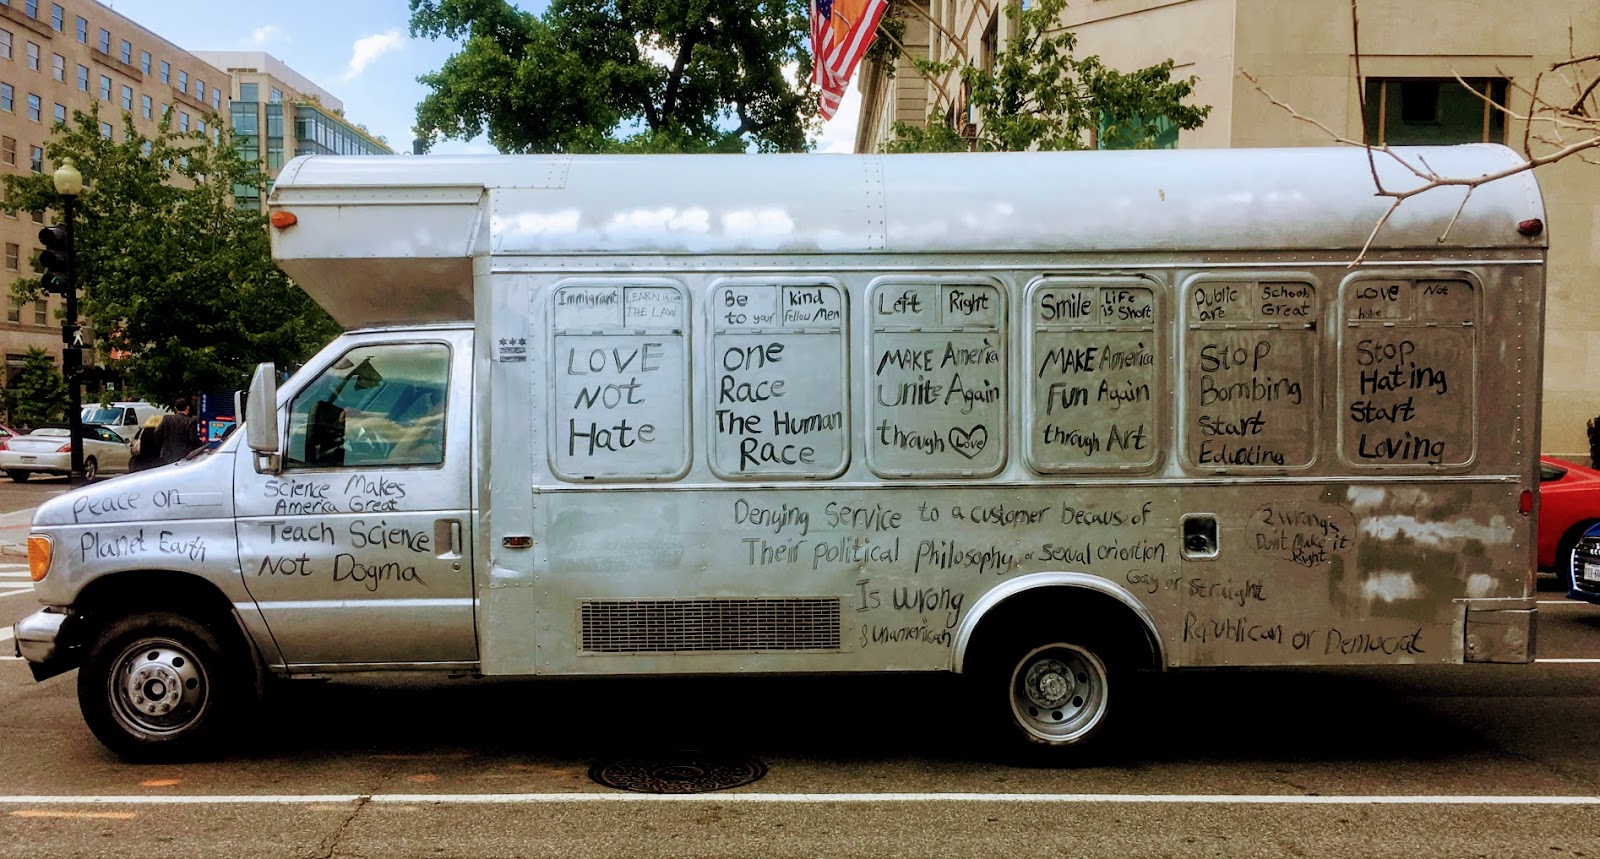 Immigrant
LEARN
THE LAW
LOVE
Not
Hate
Be
to your
kind
Fellow Men
One
Race
The Human
Race
Left
Right
MAKE America
Unite Again
through Love
Smile
Life
is Short
MAKE America
Fun Again
through Art
Public
are
Schools
Great
Stop
Bombing
Start
Educating
Love
Not
hate
Stop
Hating
Start
Loving
Peace on
Planet Earth
Science Makes
America Great
Teach Science
Not Dogma
Denying Service to a customer becaus of
Their political Philosophy or sexual oriention
Gay or Straight
Is wrong
& unamerican
Republican or Democrat
2 wrongs
Dont Make it
Right